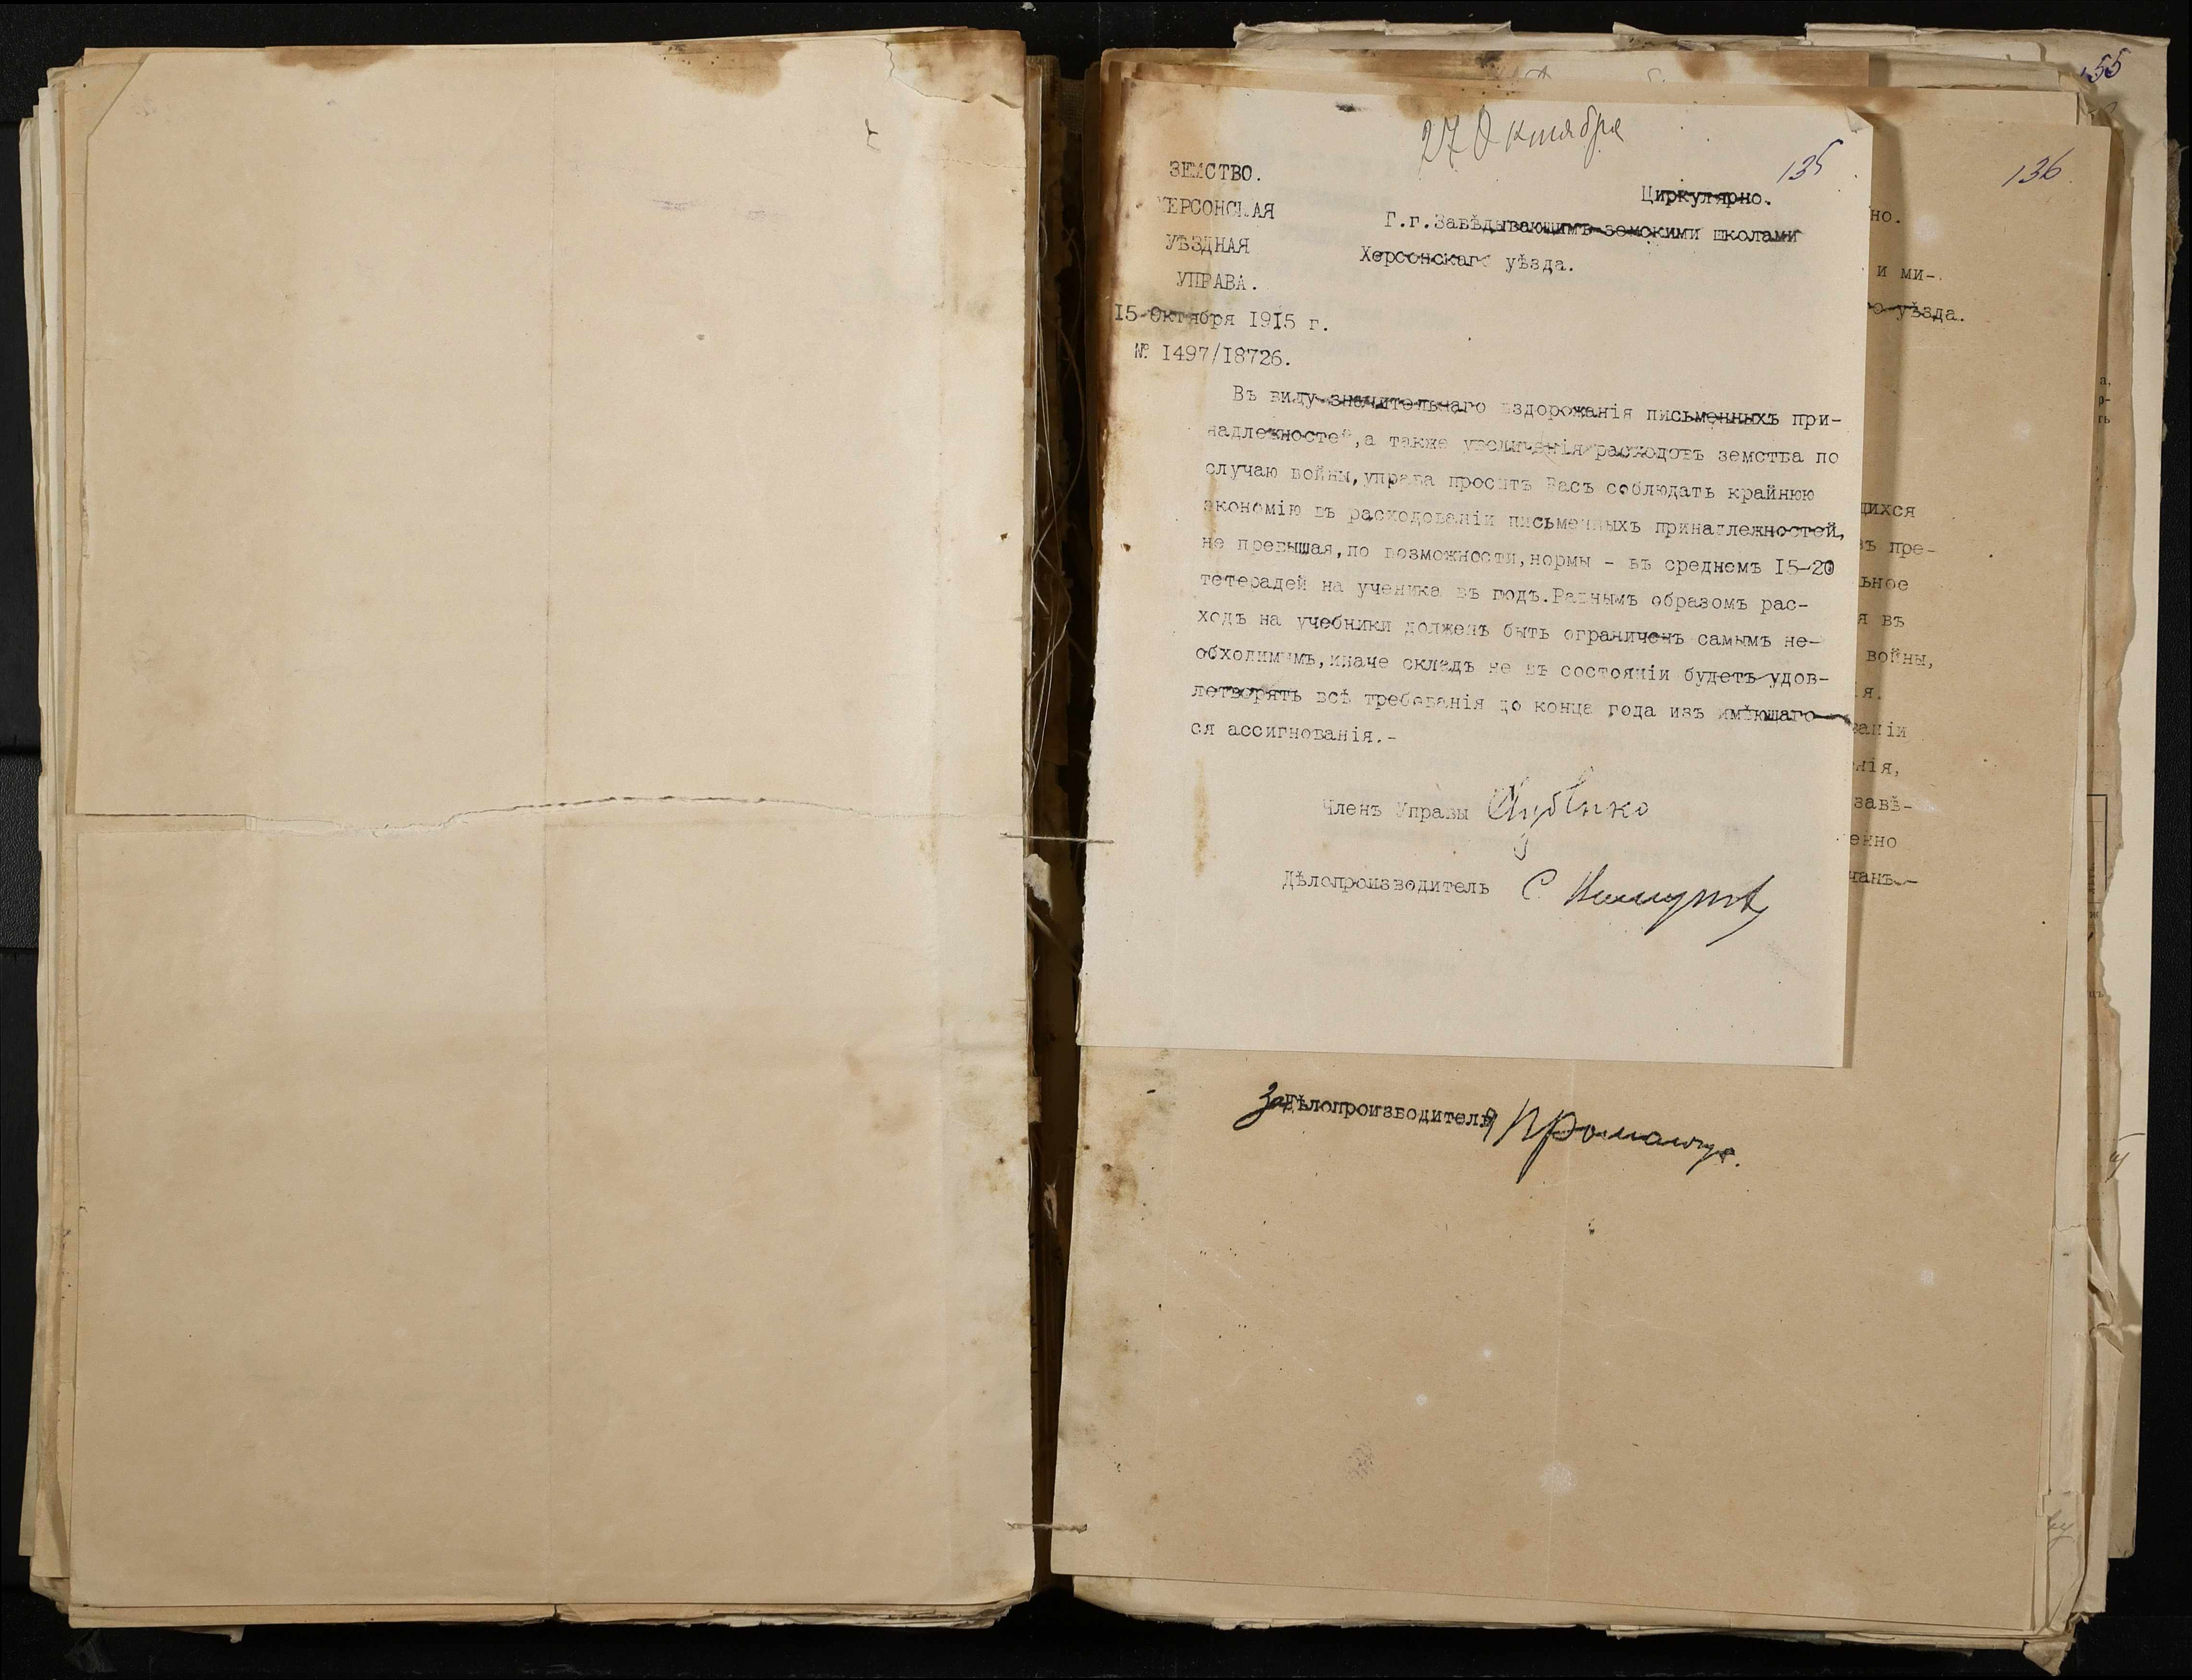 55
27 Октября
135
136
ЗЕМСТВО.
ХЕРСОНСКАЯ
УѢЗДНАЯ
УПРАВА.
15 Октября 1915 г.
№ 1497/18726.
Циркулярно.
Г.г.Завѣдывающимъ земскими школами
Херсонскаго уѣзда.
Въ виду значительнаго вздорожанія письменныхъ при-
надлежностей,а также увеличенія расходовъ земства по
случаю войны,управа проситъ Васъ соблюдать крайнюю
экономію въ расходованіи письменныхъ принадлежностей,
не превышая,по возможности,нормы - въ среднемъ 15-20
тетерадей на ученика въ годъ.Равнымъ образомъ рас-
ходъ на учебники долженъ быть ограниченъ самымъ не-
обходимымъ,иначе складъ не въ состояніи будетъ удов-
летворять всѣ требованія до конца года изъ имѣющаго-
ся ассигнованія.-
Членъ Управы
Дѣлопроизводитель С
но.
и ми-
го уѣзда.
щихся
въ пре-
ьное
я въ
войны,
ія.
ваніи
нія,
завѣ-
енно
чанъ-
За Дѣлопроизводителя